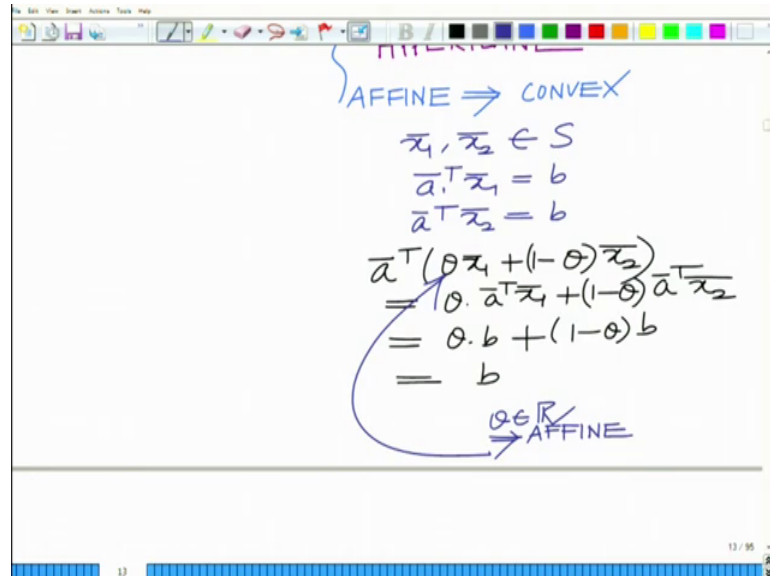 File Edit View Insert Actions Tools Help
HYPERPLANE
AFFINE ⇒ CONVEX
x̄₁, x̄₂ ∈ S
ā^T x̄₁ = b
ā^T x̄₂ = b
ā^T(θx̄₁ + (1-θ)x̄₂)
= θ. ā^T x̄₁ + (1-θ) ā^T x̄₂
= θ.b + (1-θ)b
= b
θ∈ℝ
⇒ AFFINE
13 / 95
13